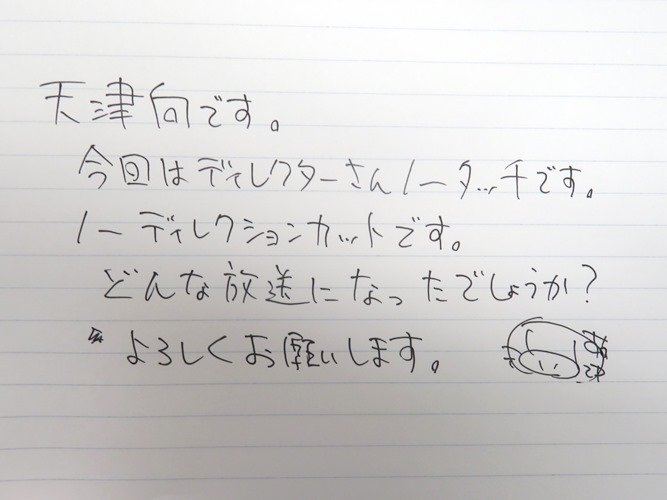 天津向です。
今回はディレクターさんノータッチです。
ノーディレクションカットです。
どんな放送になったでしょうか?
よろしくお願いします。